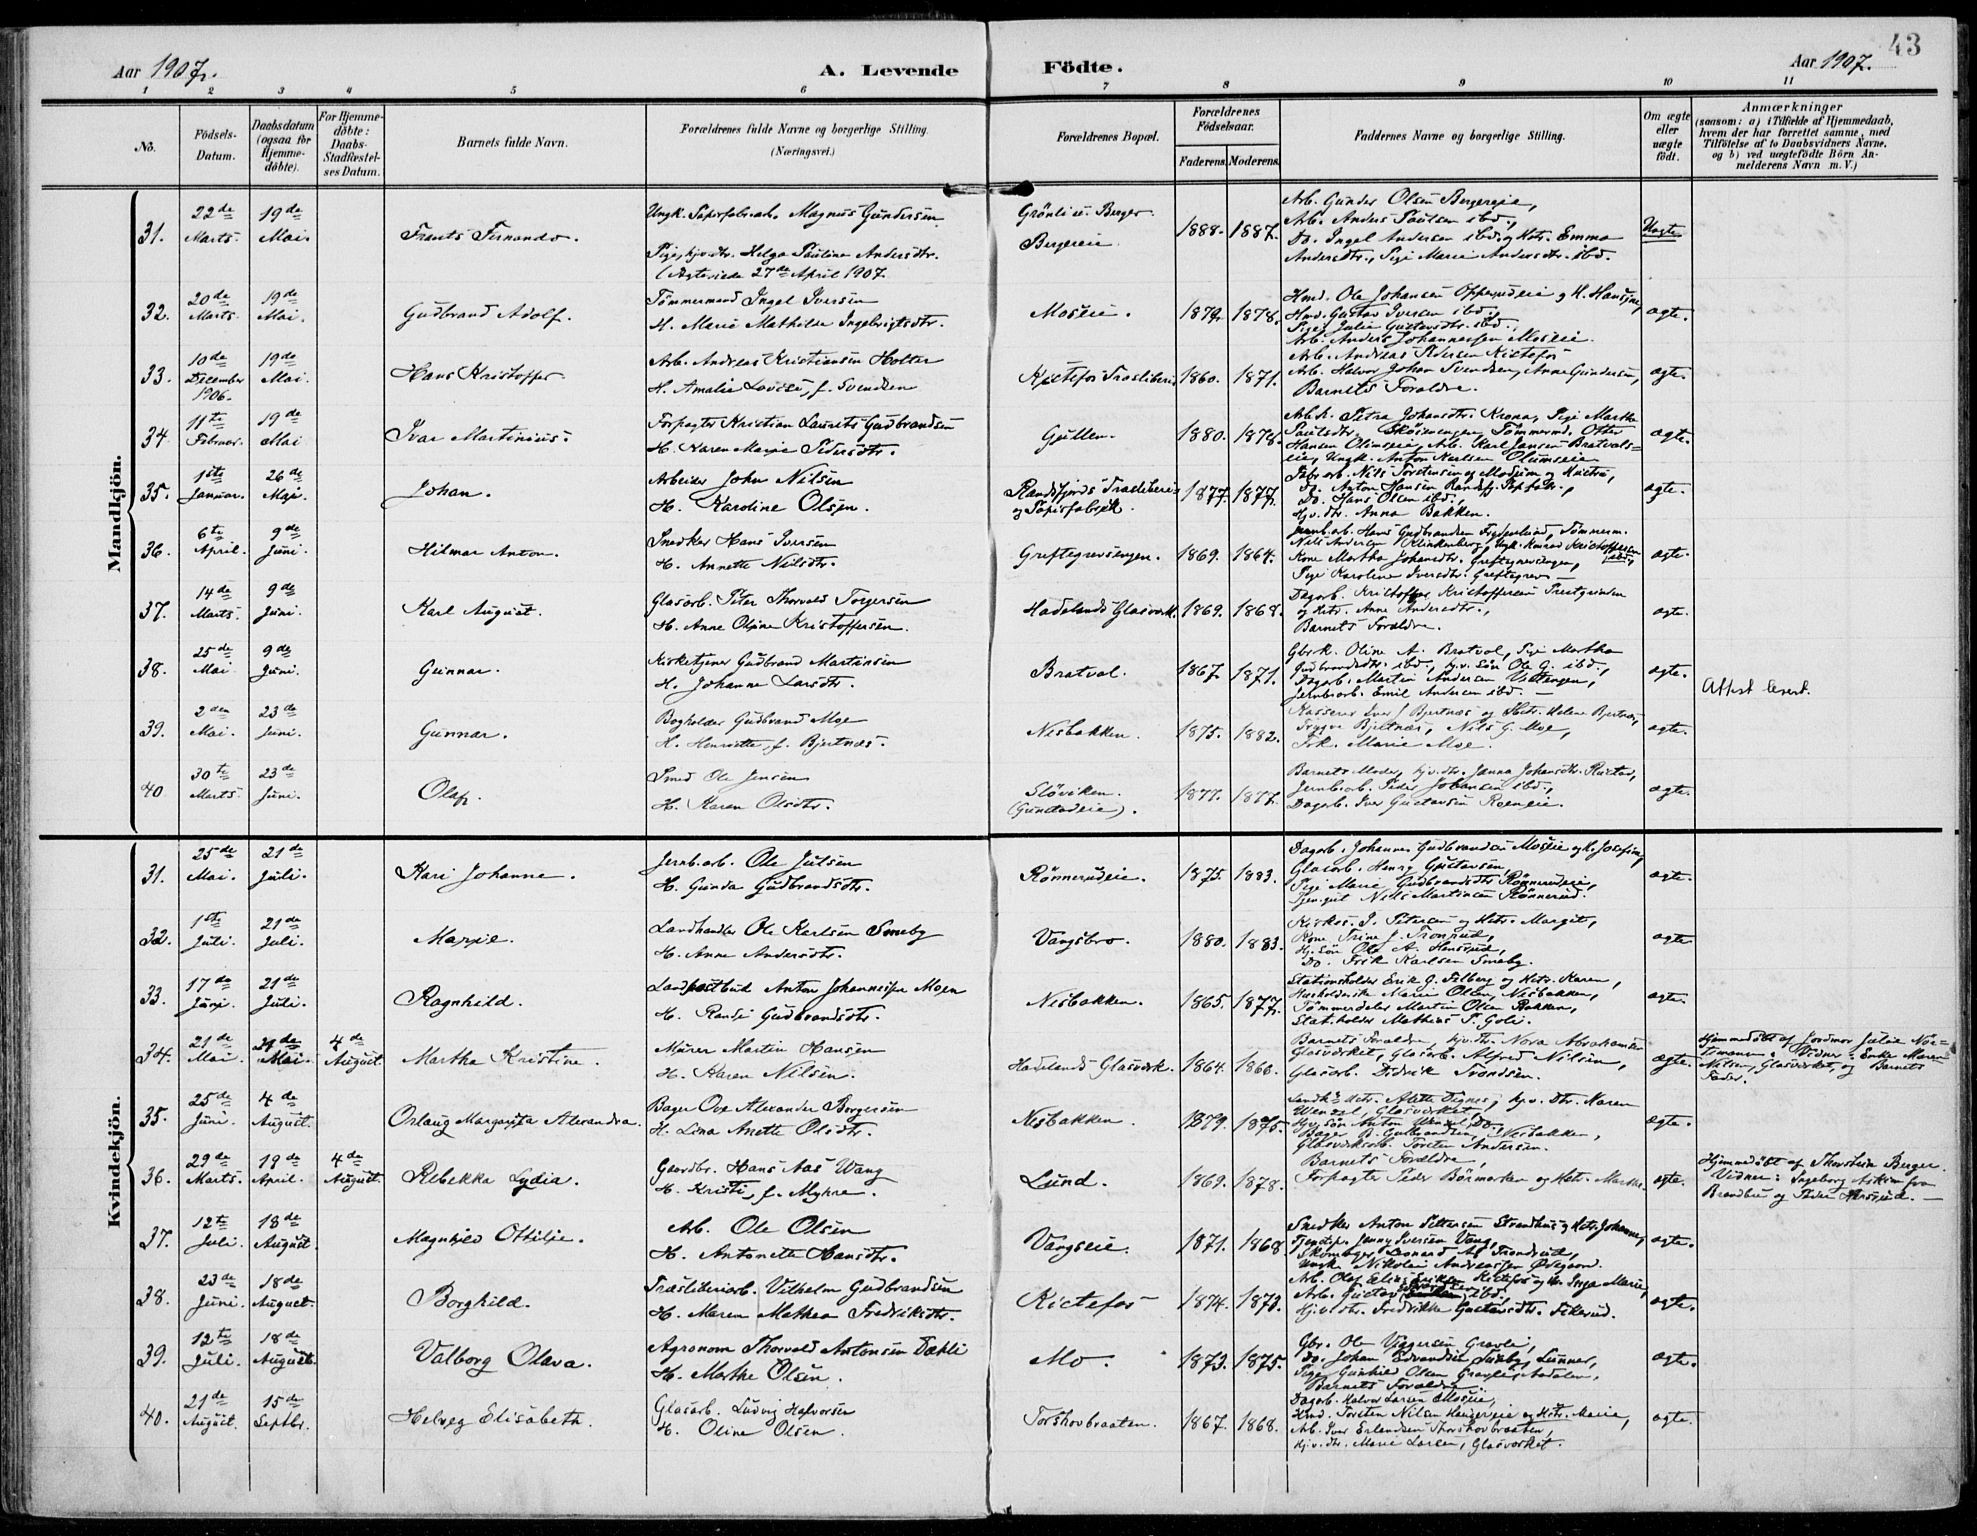 43
Aar 1907.
A. Levende
Födte.
Aar 1907.
1 2 3 4 5 6 7 8 9 10 11
No.
Födsels-
Datum.
Daabsdatum
(ogsaa for
Hjemme-
döbte).
For Hjemme-
döbte:
Daabs-
Stadfæstel-
ses Datum.
Barnets fulde Navn.
Forældrenes fulde Navne og borgerlige Stilling.
(Næringsvei.)
Forældrenes Bopæl.
Forældrenes
Födselsaar.
Faderens. Moderens.
Faddernes Navne og borgerlige Stilling.
Om ægte
eller
uægte
födt.
Anmærkninger
(saasom: a) i Tilfælde af Hjemmedaab,
hvem der har forrettet samme, med
Tilföielse af to Daabsvidners Navne,
og b) ved uægtefödte Börn An-
melderens Navn m. V.)
Mandkjön.
31.
22de
Marts.
19de
Mai.
Frants Fernando.
Ungk. Papirfabr.arb. Magnus Gundersen
Pige, hjv. dtr. Helga Pauline Andersdtr.
(Ægteviede 27de April 1907.
Grönli u. Berger
Bergereie
1888. 1887.
Arb. Gunder Olsen Bergereie,
Arb. Anders Paulsen ibd.,
Do. Ingel Andersen ibd. og Hstr. Emma
Andersdtr., Pige Marie Andersdtr. ibd.
Uægte
32.
20de
Marts.
19de
Mai.
Gudbrand Adolf.
Tömmermand Ingel Iversen
H. Marie Mathilde Ingebrigtsdtr.
Moseie.
1879. 1878.
Hmd. Ole Johansen Opperudeie og H. Hansine,
Hmd. Gustav Iversen ibd.,
Pige Julie Gustavsdtr. ibd.,
Arb. Anders Johannessen Moseie.
ægte.
33.
10de
December
1906.
19de
Mai.
Hans Kristoffer.
Arb. Andreas Kristiansen Holter
H. Amalie Lovise, f. Svendsen
Kistefos Træsliberi
1860. 1871.
Arb. Andreas Pedersen Kistefos
Arb. Halvor Johan Svendsen, Anne Gundersen,
Barnets Forældre.
ægte.
34.
11te
Februar.
19de
Mai
Ivar Martinius.
Forpagter Kristian Laurits Gudbrandsen
H. Karen Marie Pedersdtr.
Gullen.
1880. 1878.
Petra Johansdtr. Krona, Pige Marthe
Paulsdtr. Tömmermd. Otto
Hansen Olimseie, Arb. Karl Jansen Bratvals-
eie, Ungk. Anton Karlsen Olumseie
ægte.
35.
1ste
Januar.
26de
Mai.
Johan.
Arbeider John Nilsen
H. Karoline Olsen.
Randsfjords Træsliberi
og Papirfabrik.
1877. 1877.
Fabr.arb. Nils Torstensen og Hustru,
Do. Anton Hansen
Do. Hans Olsen ibd.,
Hjv. dtr. Anna Bakken.
ægte.
36.
6te
April.
9de
Juni.
Hilmar Anton.
Snedker Hans Iversen
H. Annette Nilsdtr.
Greftegrevsengen.
1869. 1864.
Jernb.arb. Hans Gudbrandsen Tömmerm.
Nils Andersen Klinkenberg, Ungk. Konrad Kristoffersen
Kone Martha Johansdtr. Greftegrevsengen, ibd.,
Pige Karoline Iversdtr. Greftegrev —
ægte.
37.
14de
Marts.
9de
Juni.
Karl August.
Glasarb. Peter Thorvald Torgersen
H. Anne Oline Kristoffersen.
Hadelands Glasværk.
1869. 1868.
Dagarb. Kristoffer Kristoffersen
og Hstr. Anne Andersdtr.,
Barnets Forældre.
ægte.
38.
25de
Mai.
9de
Juni.
Gunnar.
Kirketjener Gudbrand Martinsen
H. Johanne Larsdtr.
Bratval.
1867. 1871.
Gbrk. Oline A. Bratval, Pige Martha
Gudbrandsdtr. ibd., hjv. Sön Ole G. ibd.,
Dagarb. Martin Andersen
Jernb.arb. Emil Andersen ibd. —
ægte.
Attest levert.
39.
2den
Mai.
23de
Juni.
Gunnar.
Bogholder Gudbrand Moe
H. Henriette, f. Bjertnæs.
Nesbakken.
1875. 1882.
Kasserer Iver J. Bjertnæs og Hstr. Helene Bjertnæs,
Trygve Bjertnæs, Nils G. Moe,
Frk. Marie Moe.
ægte.
40
30te
Marts.
23de
Juni.
Olaf.
Smed Ole Jensen
H. Karen Olsdtr.
Slöviken.
1877. 1877.
Barnets Moder, hjv. dtr. Janna Johansdtr.
Jernb.arb. Peder Johansen ibd.,
Dagarb. Iver Gustavsen
ægte.
Kvindekjön.
31.
25de
Mai.
21de
Juli.
Kari Johanne.
Jernb.arb. Ole Julsen
H. Gunda Gudbrandsdtr.
Rönnerudeie.
1875. 1883.
Dagarb. Johannes Gudbrandsen Moseie og H. Josefine,
Glasarb. Henry Gustavsen,
Pige Marie Gudbrandsdtr Rönnerudeie,
Tjen.gut Nils Martinsen Rönnerud.
ægte.
32.
1ste
Juli.
21de
Juli.
Marie.
Landhandler Ole Karlsen Smeby
H. Anne Andersdtr.
Vangsbro.
1880. 1883.
Kirkes. P. Petersen og Hstr. Margit,
Kone Trine J. Tronrud,
Hj. Sön Ole A. Hensrud,
Do. Frik Karlsen Smeby.
ægte
33.
17de
Juni.
21de
Juli.
Ragnhild.
Landpostbud Anton Johannessen Moen
H. Randi Gudbrandsdtr.
Nesbakken.
1865. 1877.
Stationsholder Erik G. Felberg og Hstr. Karen,
Husholderske Marie Olsen, Nesbakken,
Tömmerdeler Martin Olsen Bakken,
Stat.holder Mathias P. Goli.
ægte.
34.
21de
Mai.
21de
Mai.
4de
August.
Martha Kristine.
Murer Martin Hansen
H. Karen Nilsen.
Hadelands Glasværk.
1864. 1866.
Barnets Forældre, hjv. dtr. Nora Abrahamsen
Glasværket, Glasarb. Alfred Nilsen,
Glasarb. Didrik Trondsen.
ægte.
Hjemmedöbt af Jordmor Julie
Vidner: Enke Maren
Nilsen, Glasværket, og Barnets
Fader.
35.
25de
Juni.
4de
August.
Oslaug Margarita Alexandra.
Bager Ove Alexander Borgersen
H. Lina Anette Olsdtr.
Nesbakken.
1879. 1875.
hjv. dtr. Karen
Wenzel, Glasværket,
Hjv. sön Anton Wenzel, Do.,
Bager B. Gulbrandsen, Nesbakken,
Glasværksarb. Torsten Andersen.
ægte.
36.
29de
Marts.
19de
April.
4de
August.
Rebekka Lydia.
Gaardbr. Hans Aas Wang
H. Kristi, f. Myhre.
Lund.
1869. 1878.
Barnets Forældre,
Forpagter Peder Börmarken og Hstr. Marthe.
ægte.
Hjemmedöbt af Thorstein Berger.
Vidner: Ingeborg Askim fra
Brandbu og Peder Hensrud. —
37.
12te
Juli.
18de
August.
Magnhild Ottilie.
Arb. Ole Olsen
H. Antonette Hansdtr.
Vangseie.
1871. 1868
Snedker Anton Pettersen Strandhus og Hstr. Johanne,
Tjen.tp. Jenny Iversen Vang,
Skomager Leonard A. Trondrud,
Ungk. Nikolai Andreassen Övregaard.
ægte.
38.
23de
Juni.
18de
August.
Borghild.
Træsliberiarb. Vilhelm Gudbrandsen
H. Maren Mathea Fredriksdtr.
Kistefos
1874. 1873.
Arb. Olaf Kistefos og H. Inga Marie,
Arb. Gustav ibd.,
Hjv. dtr. Fredrikke Gustavsdtr.
ægte.
39.
12te
Juli.
18de
August.
Valborg Olava.
Agronom Thorvald Antonsen Dæhli
H. Marthe Olsen.
Mo.
1873. 1875.
Gbr. Ole Viggersen Gravli,
Do. Johan Edvardsen Lunner,
Pige Gunhild Olsen Gravli, Aadalen,
Barnets Forældre
ægte.
40.
21de
August.
15de
Septbr.
Helveg Elisabeth.
Glasarb. Ludvig Halvorsen
H. Oline Olsen.
Torshovbraaten.
1867. 1868.
Dagarb. Halvor Larsen Moseie,
Hmd. Torsten Nilsen Haugereie og Hstr. Marie,
Arb. Iver Erlandsen Thorshovbraaten,
Hjv. dtr. Marie Larsen, Glasværket.
ægte.